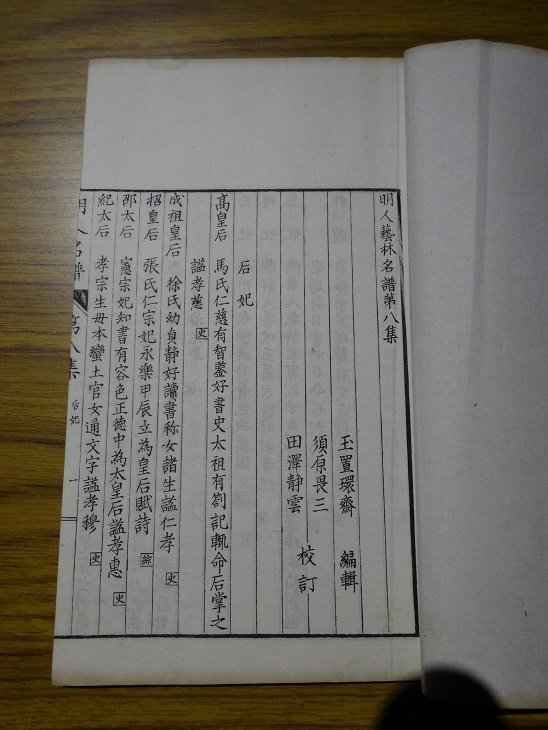 明人藝林名譜第八集
玉置環齋　編輯
須原畏三
田澤静雲　校訂
后妃
高皇后　馬氏仁慈有智鑒好書史太祖有劄記輒命后掌之
謚孝慈　史
成祖皇后　徐氏幼貞静好讀書称女諸生謚仁孝　史
招皇后　張氏仁宗妃永樂甲辰立為皇后賦詩
邵太后　憲宗妃知書有容色正徳中為太皇后謚孝惠　史
紀太后　孝宗生母本蠻土官女通文字謚孝穆　史
明人名譜　第八集　后妃　一